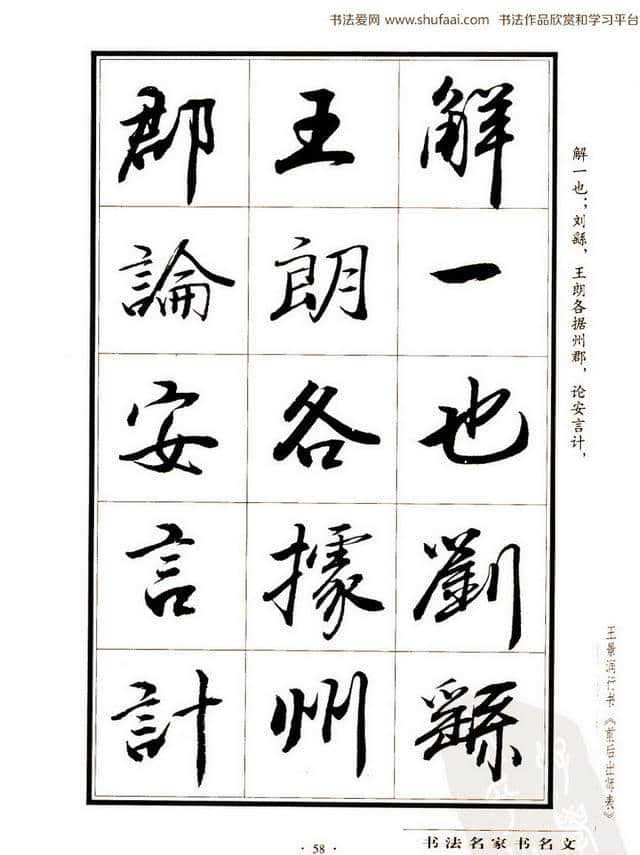 书法爱网 www.shufaai.com 书法作品欣赏和学习平台
解一也劉繇
王朗各據州
郡論安言計
解一也；刘繇，王朗各据州郡，论安言计，
王景润行书《前后出师表》
· 58 ·
书法名家书名文